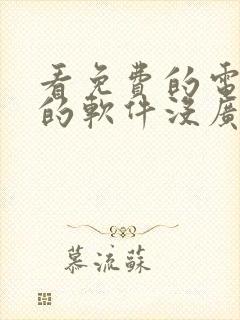 看免費的電
的軟件沒廣
慕流蘇